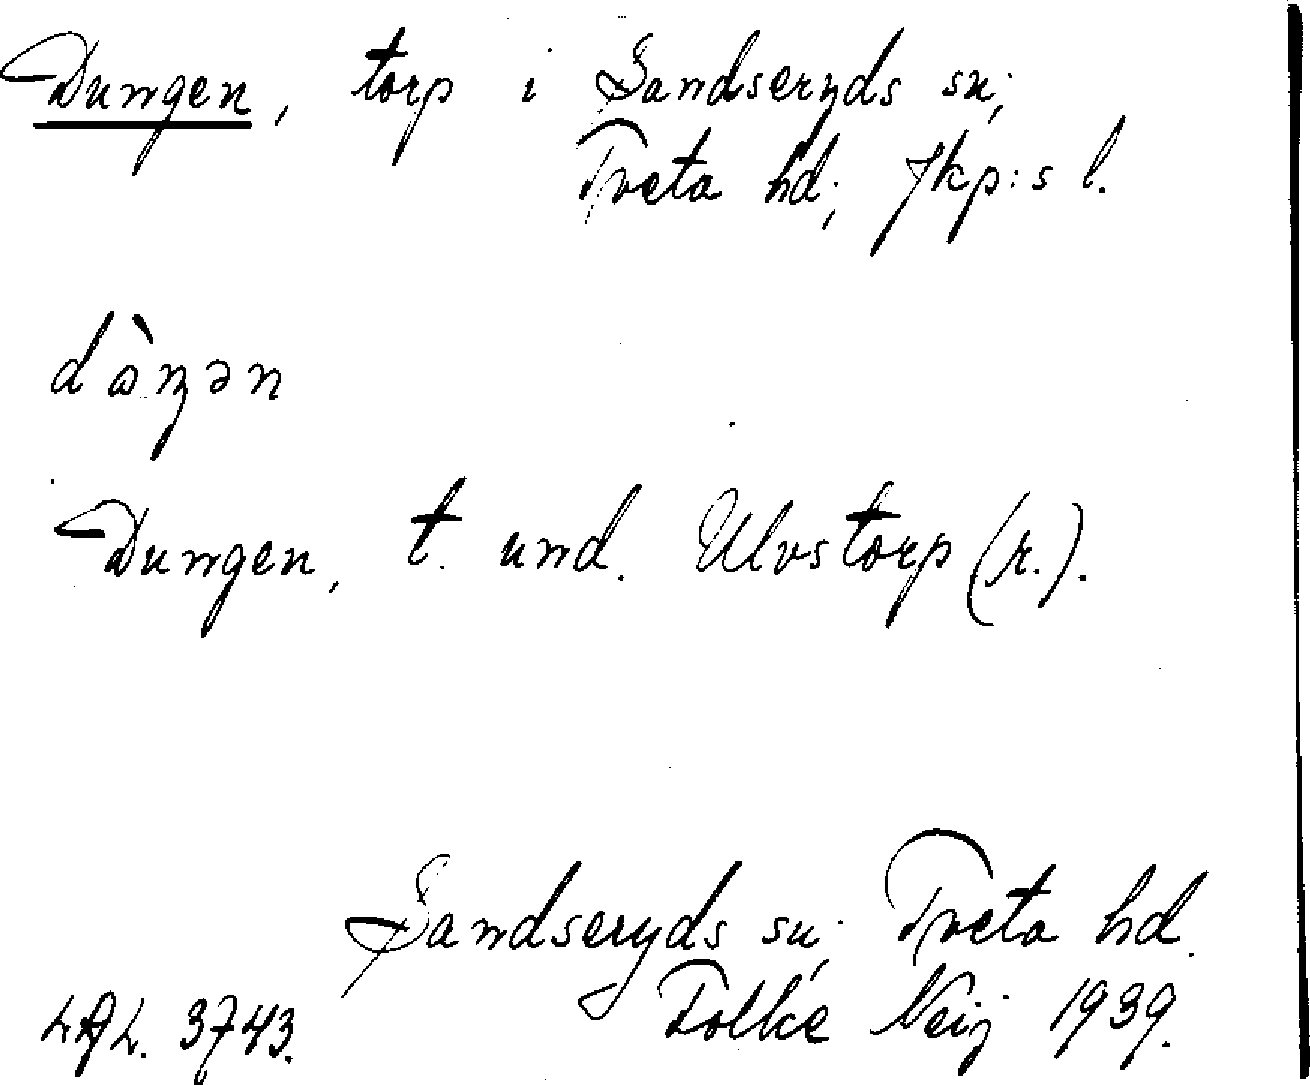 Dungen, torp i Sandseryds sn;
Tveta hd; Jkp:s l.
dòŋən
Dungen, t. und. Ulvstorp (r.).
Sandseryds sn; Tveta hd.
Folke Neij 1939.
LAL. 3743.